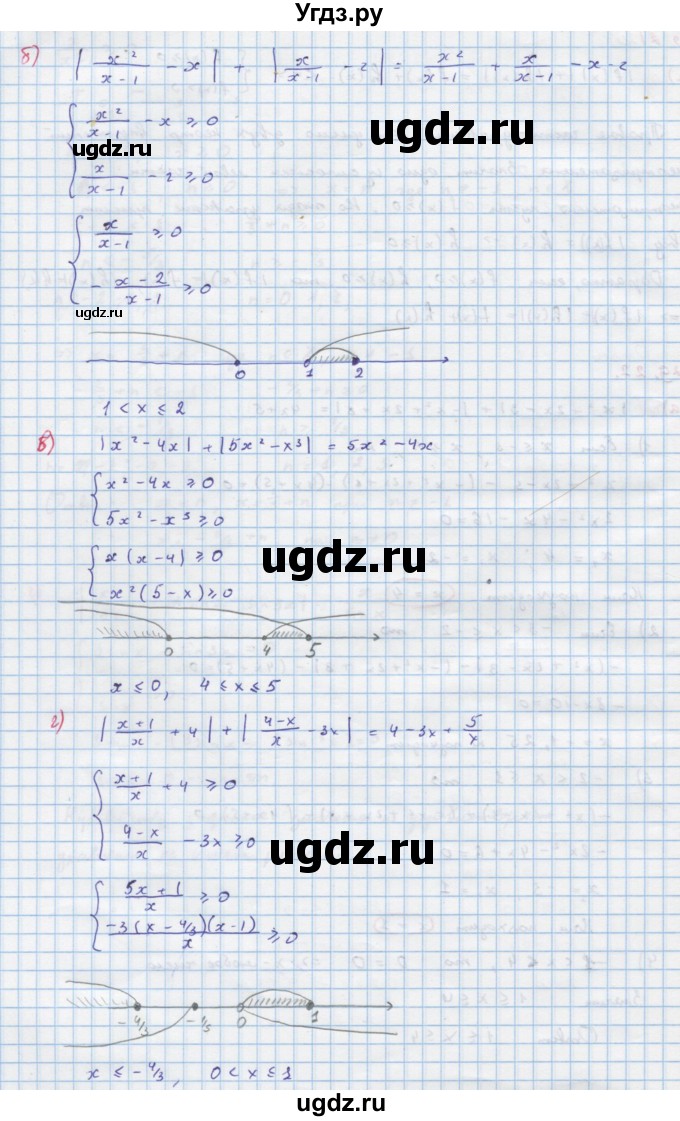 Угдз.ру
б) | x²/(x-1) - x | + | x/(x-1) - 2 | = x²/(x-1) + x/(x-1) - x - 2
{ x²/(x-1) - x ⩾ 0
ugdz.ru
ugdz.ru
x/(x-1) - 2 ⩾ 0
{ x/(x-1) ⩾ 0
- (x-2)/(x-1) ⩾ 0
0 1 2
1 < x ≤ 2
в) |x² - 4x| + |5x² - x³| = 5x² - 4x
{ x² - 4x ⩾ 0
5x² - x³ ⩾ 0
ugdz.ru
{ x(x-4) ⩾ 0
x²(5-x) ⩾ 0
0 4 5
x ≤ 0, 4 ≤ x ≤ 5
г) | (x+1)/x + 4 | + | (4-x)/x - 3x | = 4 - 3x + 5/x
{ (x+1)/x + 4 ⩾ 0
(4-x)/x - 3x ⩾ 0
ugdz.ru
{ (5x+1)/x ⩾ 0
-3(x - 4/3)(x-1)/x ⩾ 0
-4/3 -1/5 0 1
x ≤ -4/3, 0 < x ≤ 1
ugdz.ru